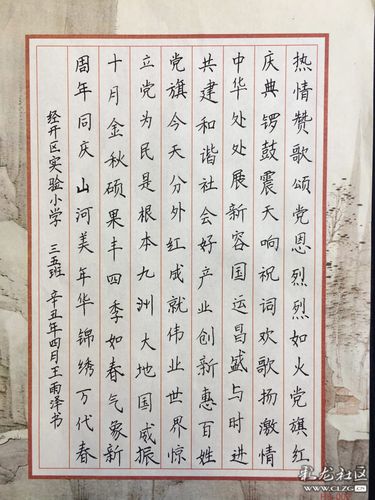 热情赞歌颂党恩烈烈如火党旗红
庆典锣鼓震天响祝词欢歌扬激情
中华处处展新容国运昌盛与时进
共建和谐社会好产业创新惠百姓
党旗今天分外红成就伟业世界惊
立党为民是根本九洲大地国威振
十月金秋硕果丰四季如春气象新
周年同庆山河美年华锦绣万代春
经开区实验小学 三五班 辛丑年四月王雨泽书
彩龙社区
WWW.CLZG.CN